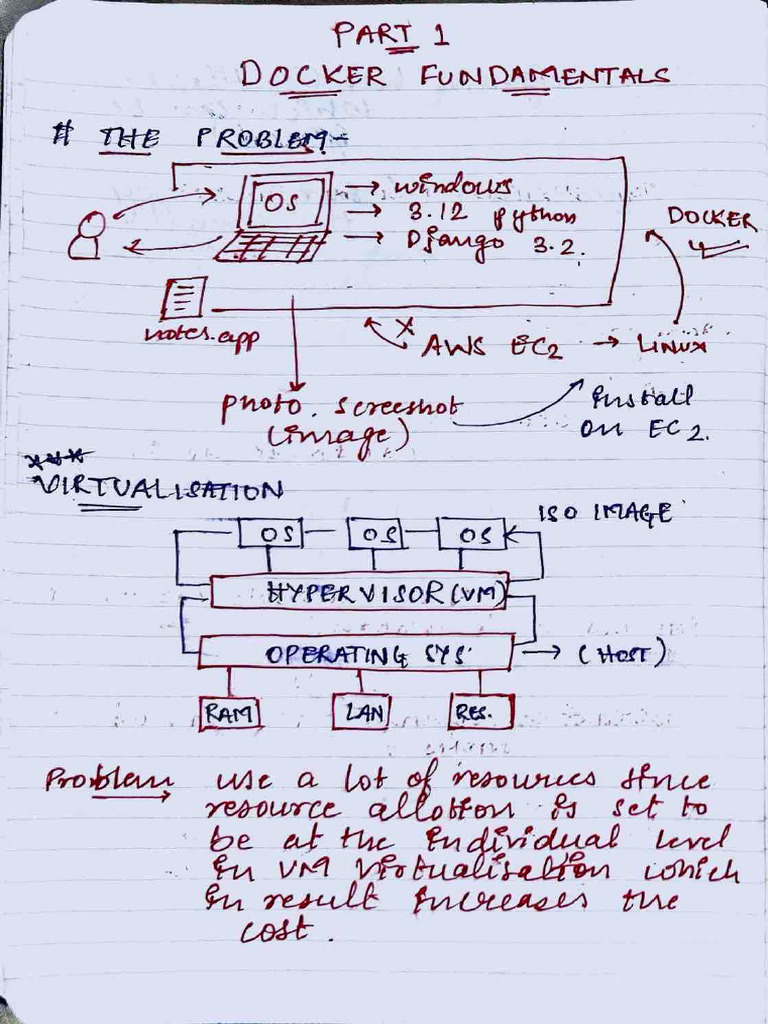 PART 1
DOCKER FUNDAMENTALS
# THE PROBLEM-
OS
→ windows
→ 3.12 python
→ Django 3.2.
DOCKER
notes.app
X
AWS EC2 → LINUX
photo. screeshot
(image)
install
on EC2.
***
VIRTUALISATION
ISO IMAGE
OS OS OS
HYPERVISOR (VM)
OPERATING SYS. → (HOST)
RAM LAN RES.
Problem use a lot of resources since
resource allotion is set to
be at the individual level
in VM virtualisation which
in result increases the
cost.